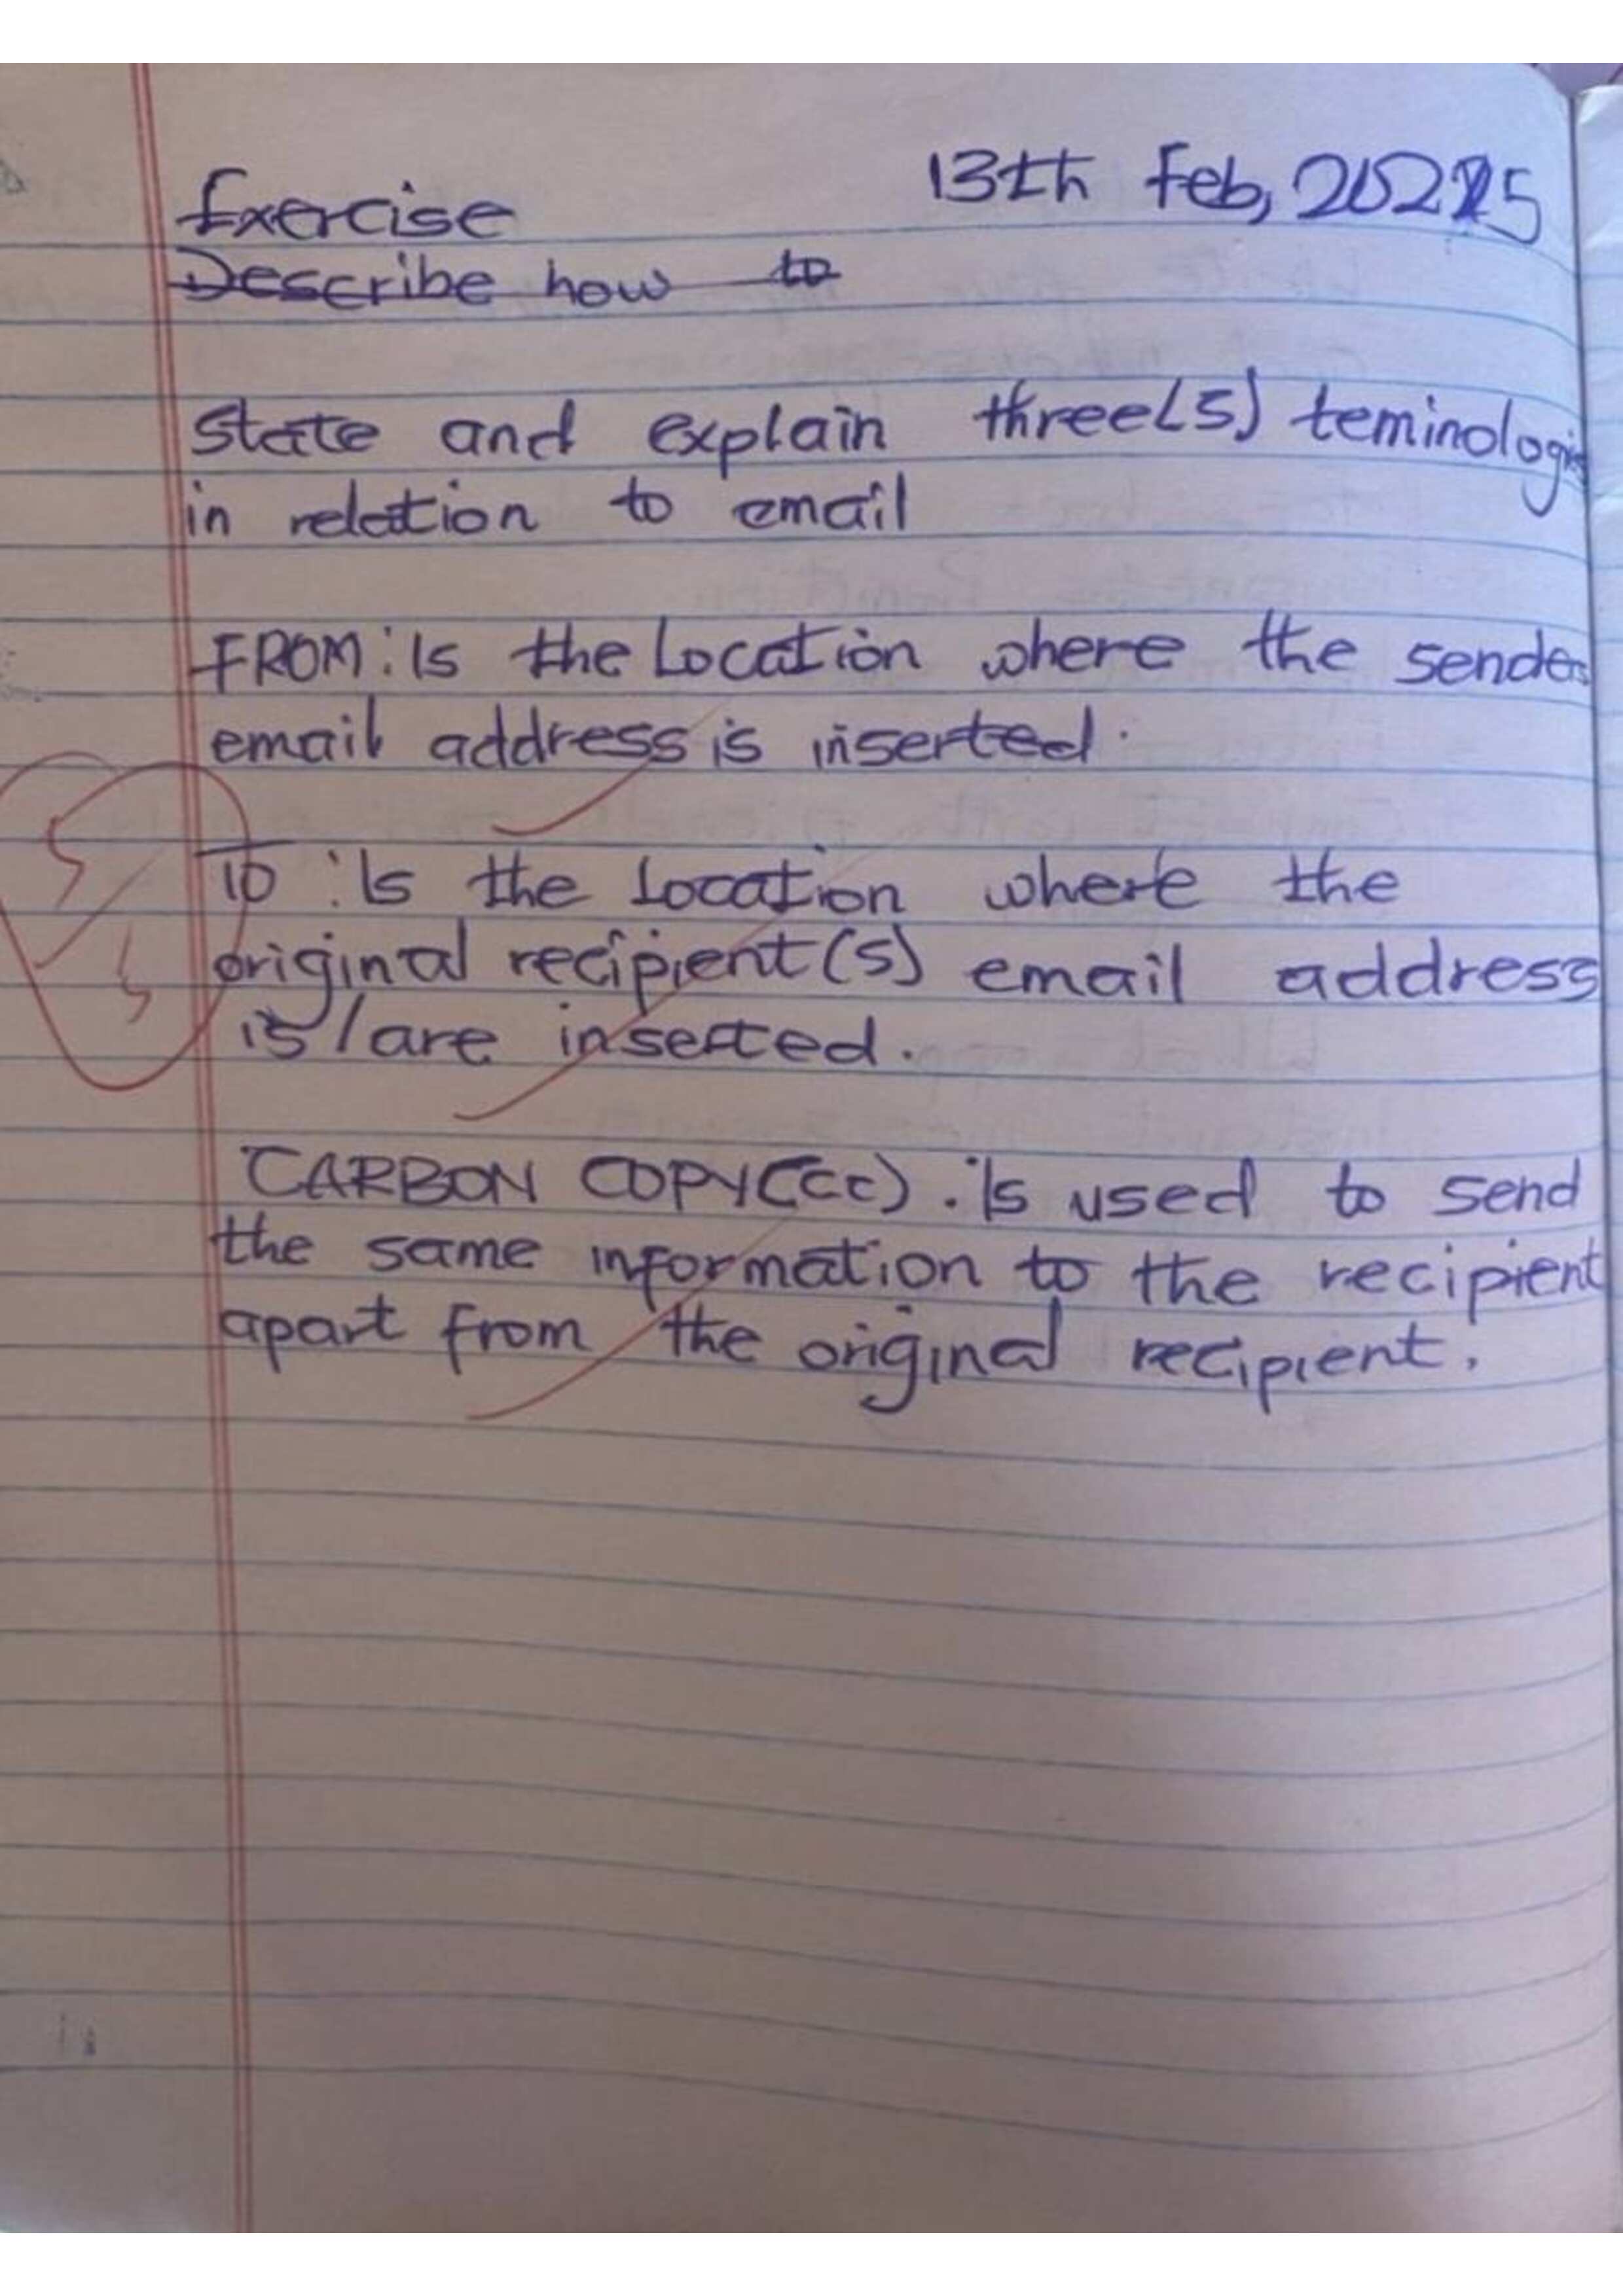 13th Feb, 2025
Exercise
Describe how to
State and explain three(3) teminologi
in relation to email
FROM: Is the Location where the senders
email address is inserted.
5
5
TO: Is the Location where the
original recipient(s) email address
is/are inserted.
CARBON COPY(CC). Is used to send
the same information to the recipient
apart from the original recipient.